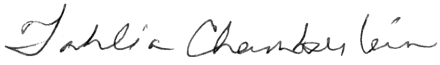 Dahlia Chamberlain